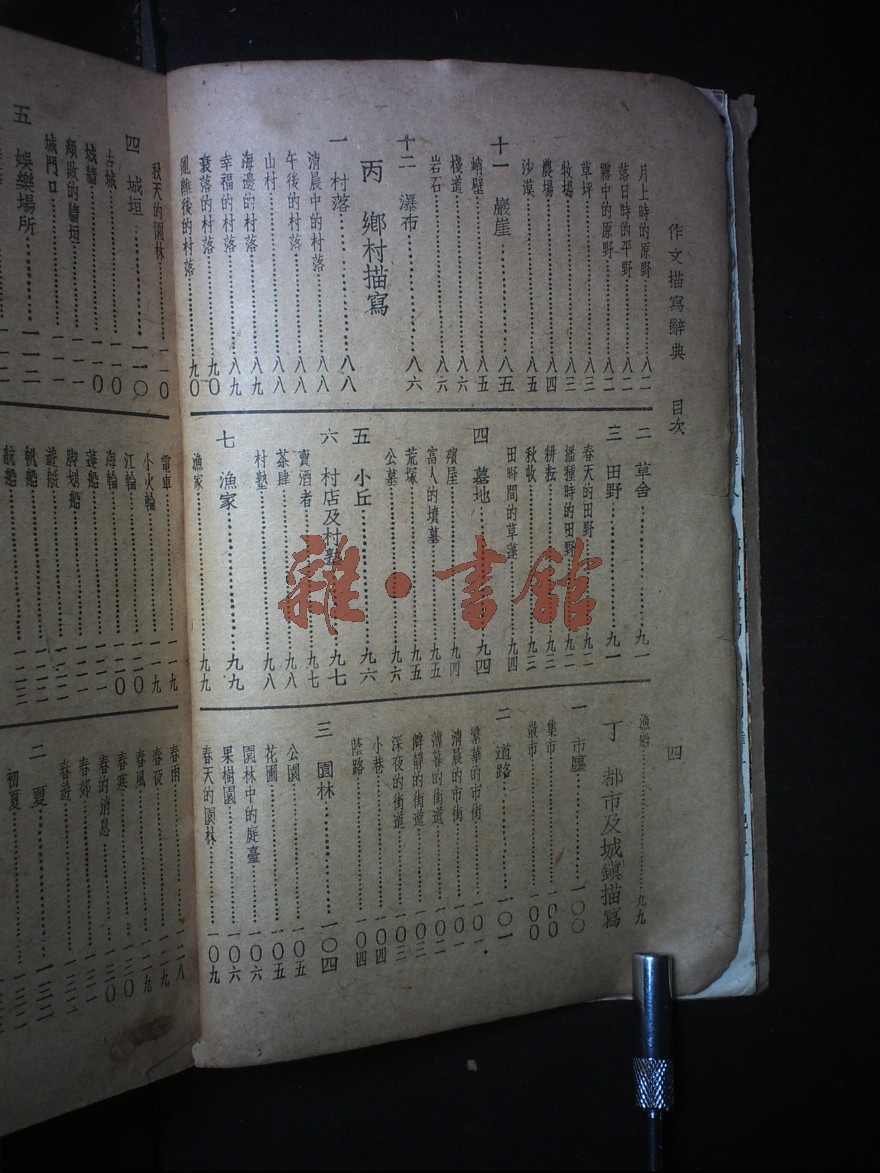 作文描寫辭典 目次
四
月上時的原野……八二
落日時的平野……八二
霧中的原野……八二
草坪……八三
牧場……八三
農場……八四
沙漠……八五
十一 巖崖……八五
峭壁……八五
棧道……八六
岩石……八六
十二 瀑布……八六
丙 鄉村描寫
一 村落……八八
清晨中的村落……八八
午後的村落……八八
山村……八八
海邊的村落……八九
幸福的村落……八九
衰落的村落……九〇
亂離後的村落……九〇
二 草舍……九一
三 田野……九一
春天的田野……九二
播種時的田野……九二
耕耘……九三
秋收……九三
田野間的草蓬……九四
四 墓地……九四
殯屋……九四
富人的墳墓……九五
荒塚……九五
公墓……九六
五 小丘……九六
六 村店及村塾……九七
賣酒者……九七
茶肆……九八
村塾……九八
七 漁家……九九
漁家……九九
漁船……九九
丁 都市及城鎮描寫
一 市廛……一〇〇
集市……一〇〇
散市……一〇〇
二 道路……一〇一
繁華的市街……一〇一
清晨的市街……一〇二
薄暮的街道……一〇二
僻靜的街道……一〇二
深夜的街道……一〇三
小巷……一〇四
蔭路……一〇四
三 園林……一〇四
公園……一〇五
花圃……一〇五
園林中的庭臺……一〇六
果樹園……一〇六
春天的園林……一〇九
秋天的園林……一一〇
四 城垣……一一〇
古城……一一〇
城牆……一一〇
頹敗的牆垣……一一一
城門口……一一一
五 娛樂場所……一一二
電車……一一九
小火輪……一一九
江輪……一二〇
海輪……一二〇
蓬船
腳划船
遊艇
帆船
航船
春雨……一二八
春夜……一二九
春風……一二九
春寒……一三〇
春的消息
春郊
春遊
二 夏
初夏
雜·書館